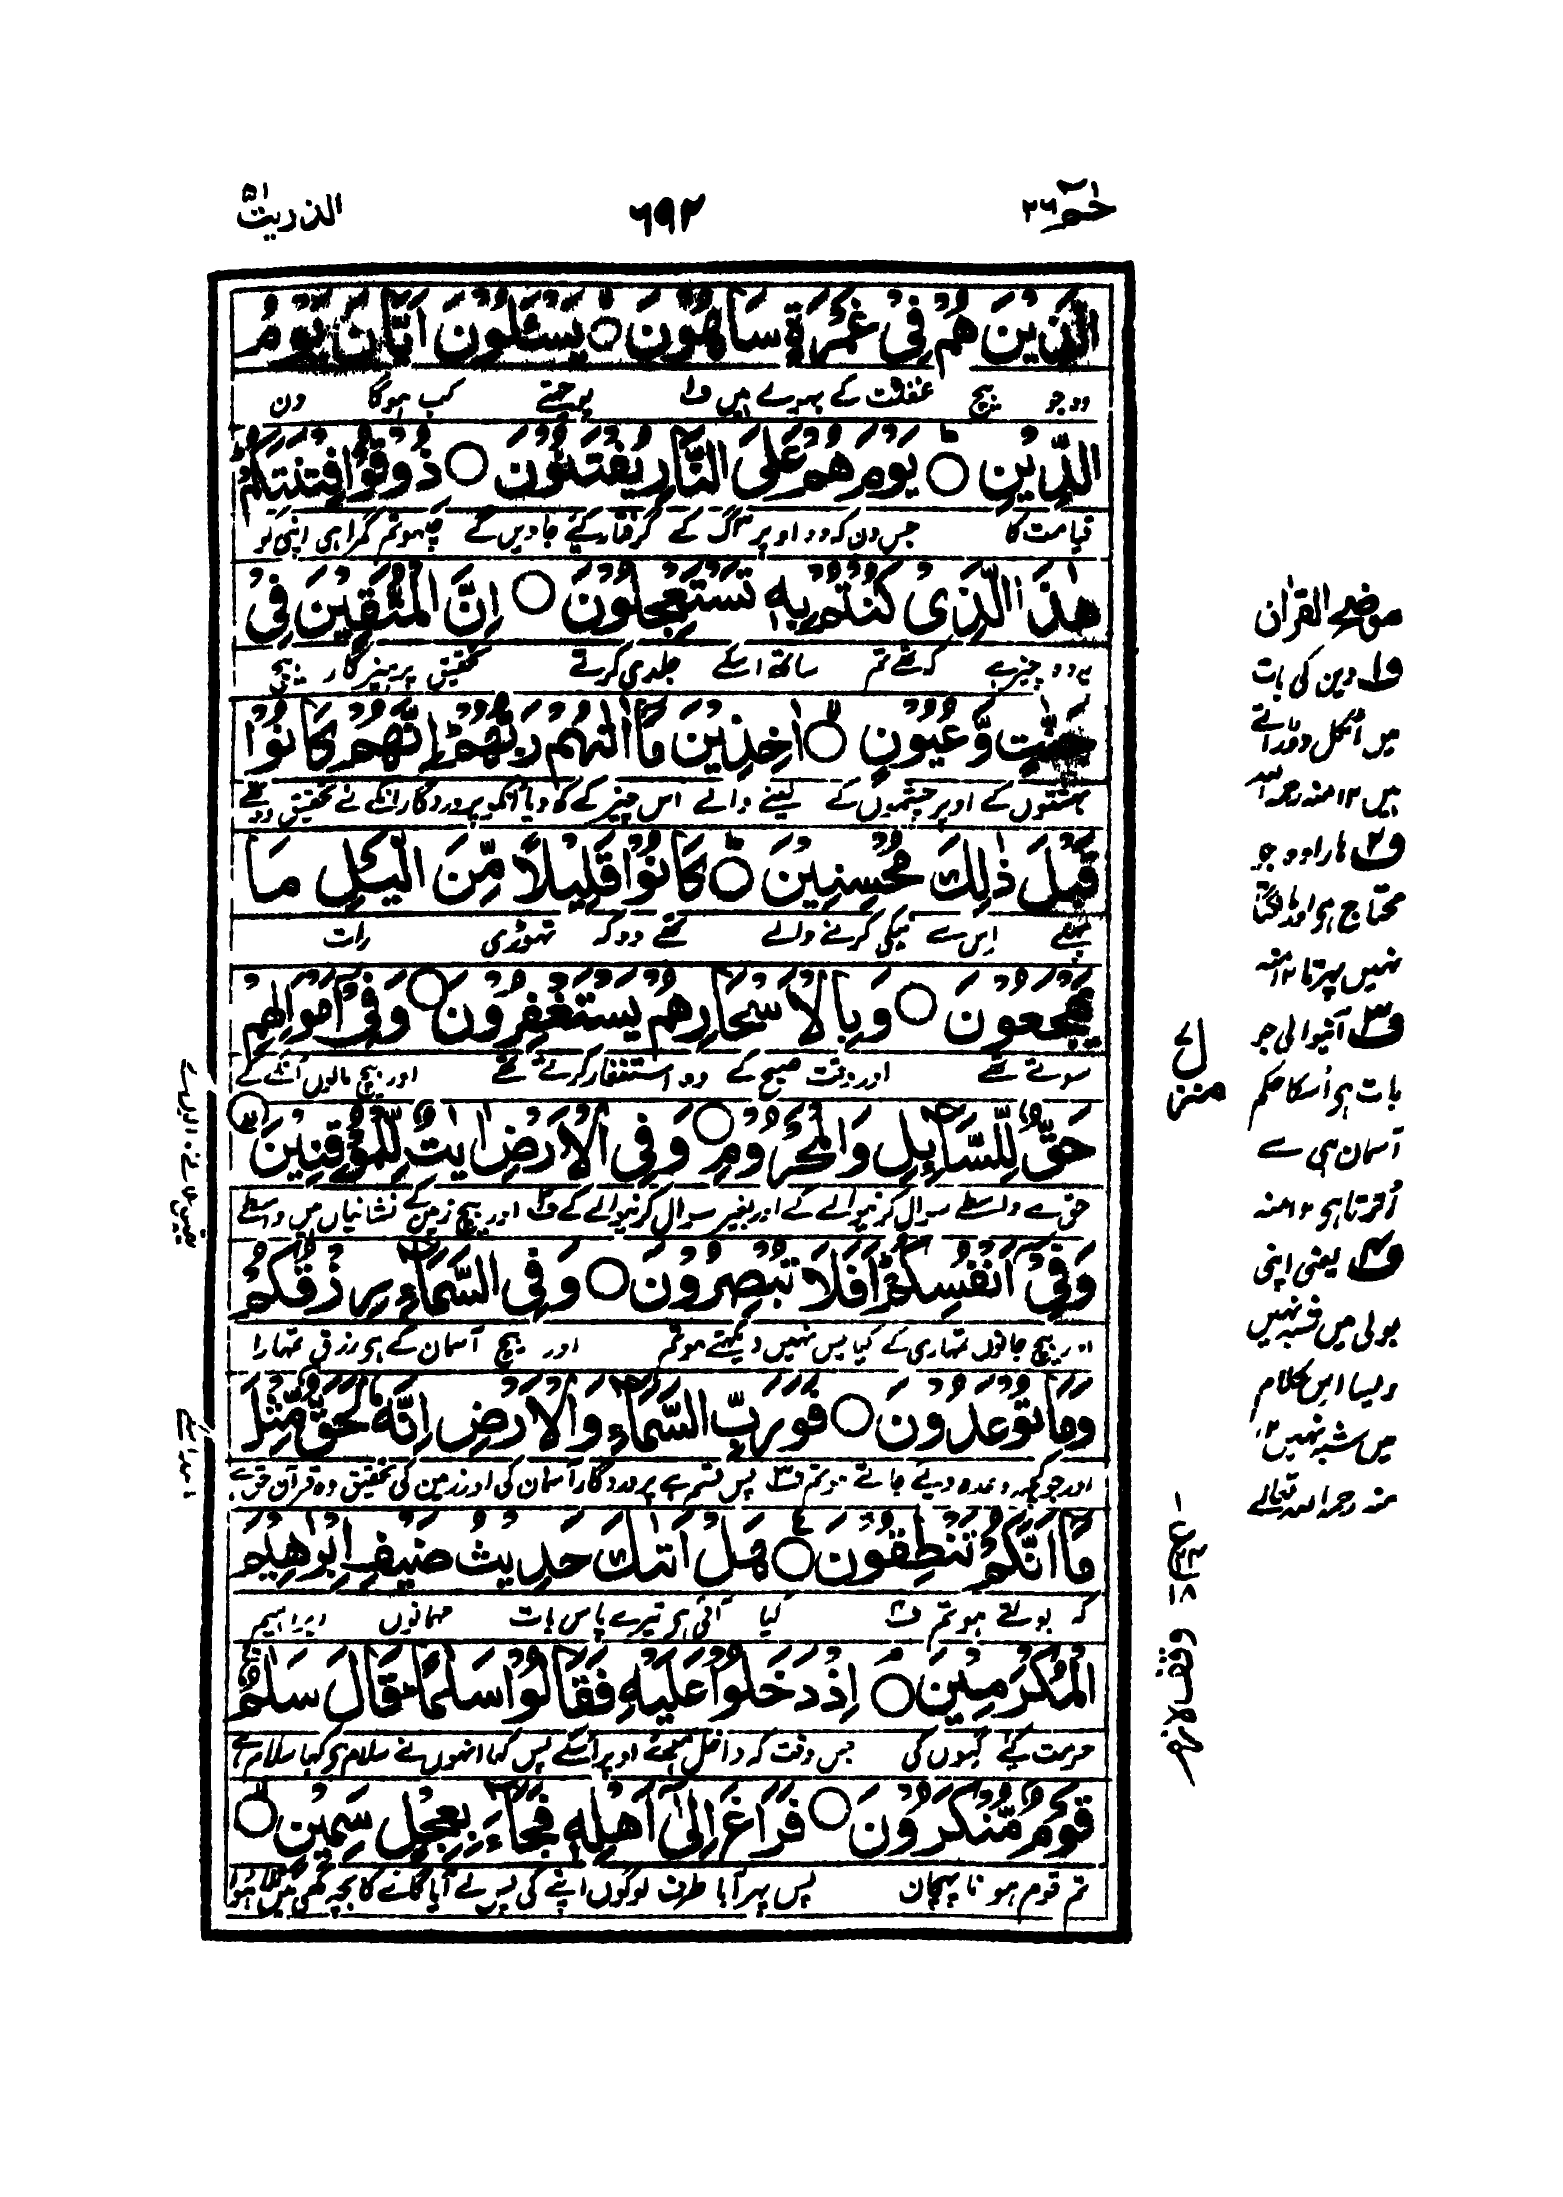 حٰمٓ ٢٦
٦٩٢
الذريت ٥١
الَّذِيْنَ هُمْ فِيْ غَمْرَةٍ سَاهُوْنَ ۝ يَسْـَٔلُوْنَ اَيَّانَ يَوْمُ
وہ جو بیچ غفلت کے بہورے ہیں ف١ پوچھتے کب ہوگا دن
الدِّيْنِ ۝ يَوْمَ هُمْ عَلَى النَّارِ يُفْتَنُوْنَ ۝ ذُوْقُوْا فِتْنَتَكُمْ
قیامت کا جس دن کہ وہ اوپر آگ کے گرفتار کیے جاویں گے چکھو تم گمراہی اپنی کو
هٰذَا الَّذِىْ كُنْتُمْ بِهٖ تَسْتَعْجِلُوْنَ ۝ اِنَّ الْمُتَّقِيْنَ فِيْ
یہ وہ چیز ہے کہ تھے تم ساتھ اسکے جلدی کرتے تحقیق پرہیزگار بیچ
جَنّٰتٍ وَّعُيُوْنٍ ۝ اٰخِذِيْنَ مَآ اٰتٰىهُمْ رَبُّهُمْ اِنَّهُمْ كَانُوْا
بہشتوں کے اوپر چشموں کے لینے والے اس چیز کے کہ دیا انکو پروردگار انکے نے تحقیق وہ تھے
قَبْلَ ذٰلِكَ مُحْسِنِيْنَ ۝ كَانُوْا قَلِيْلًا مِّنَ الَّيْلِ مَا
پہلے اس سے نیکی کرنے والے تھے وہ کہ تھوڑی رات
يَهْجَعُوْنَ ۝ وَبِالْاَسْحَارِ هُمْ يَسْتَغْفِرُوْنَ ۝ وَفِيْٓ اَمْوَالِهِمْ
سوتے تھے اور وقت صبح کے وہ استغفار کرتے تھے اور بیچ مالوں انکے کے
حَقٌّ لِّلسَّآئِلِ وَالْمَحْرُوْمِ ۝ وَفِى الْاَرْضِ اٰيٰتٌ لِّلْمُوْقِنِيْنَ ۝
حق ہے واسطے سوال کرنیوالے کے اور بغیر سوال کرنیوالے کے ف٢ اور بیچ زمین کے نشانیاں ہیں واسطے
یقین لانے والوں کے
وَفِيْٓ اَنْفُسِكُمْ اَفَلَا تُبْصِرُوْنَ ۝ وَفِى السَّمَآءِ رِزْقُكُمْ
اور بیچ جانوں تمہاری کے کیا پس نہیں دیکھتے ہو تم اور بیچ آسمان کے ہی رزق تمہارا
وَمَا تُوْعَدُوْنَ ۝ فَوَرَبِّ السَّمَآءِ وَالْاَرْضِ اِنَّهٗ لَحَقٌّ مِّثْلَ
اور جو کچھ وعدہ دیے جاتے ہو تم ف٣ پس قسم ہے پروردگار آسمان کی اور زمین کی تحقیق وہ قرآن حق ہے
مَآ اَنَّكُمْ تَنْطِقُوْنَ ۝ هَلْ اَتٰىكَ حَدِيْثُ ضَيْفِ اِبْرٰهِيْمَ
کہ بولتے ہو تم ف٤ کیا آئی ہی تیرے پاس بات مہمانوں ابراہیم
الْمُكْرَمِيْنَ ۝ اِذْ دَخَلُوْا عَلَيْهِ فَقَالُوْا سَلٰمًا قَالَ سَلٰمٌ
حرمت کئے گیوں کی جس وقت کہ داخل ہوئے اوپر اسکے پس کہا انہوں نے سلام ہی کہا سلام ہے
قَوْمٌ مُّنْكَرُوْنَ ۝ فَرَاغَ اِلٰٓى اَهْلِهٖ فَجَآءَ بِعِجْلٍ سَمِيْنٍ ۝
تم قوم ہو نا پہچان پس پھر آیا طرف لوگوں اپنے کی پس لے آیا گائے کا بچہ گھی میں تلا ہوا
موضح القرآن
ف١ دین کی بات
میں اٹکل دوڑاتے
ہیں ١٢ منہ رحمہ اللہ
ف٢ ہارا وہ جو
محتاج ہی اور مانگتا
نہیں پھرتا ١٢ منہ
ف٣ آنیوالی جو
بات ہی اسکا حکم
آسمان ہی سے
اترتا ہی ١٢ منہ
ف٤ یعنی اپنی
بولی میں شبہ نہیں
ویسا اس کلام
میں شبہ نہیں ١٢
منہ رحمہ اللہ تعالے
منزل ٧
وقف لازم